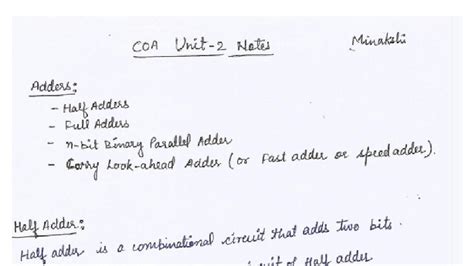 COA Unit-2 Notes Minakshi
Adders:
- Half Adders
- Full Adders
- n-bit Binary Parallel Adder
- Carry Look-ahead Adder (or Fast adder or speed adder).
Half Adder:
Half adder is a combinational circuit that adds two bits.
circuit of Half adder